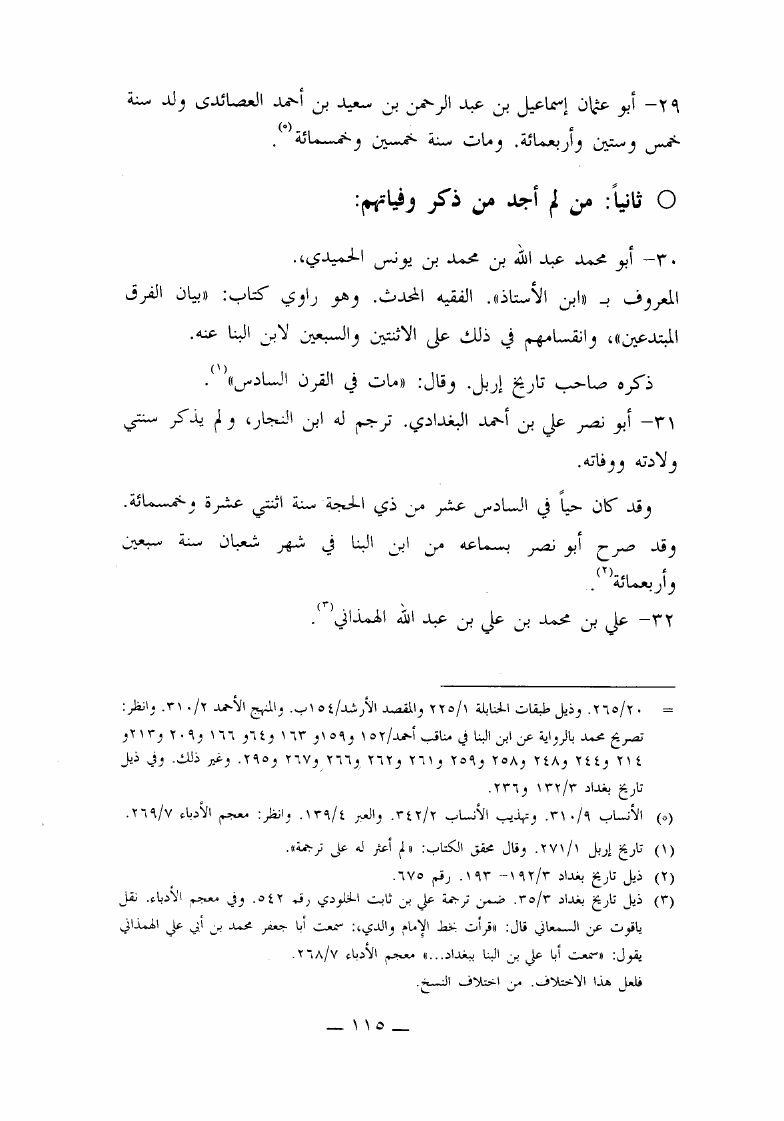 ٢٩– أبو عثمان إسماعيل بن عبد الرحمن بن سعيد بن أحمد العصائدى ولد سنة
خمس وستين وأربعمائة. ومات سنة خمسين وخمسمائة(٥).
○ ثانياً: من لم أجد من ذكر وفياتهم:
٣٠– أبو محمد عبد الله بن محمد بن يونس الحميدي،.
المعروف بـ «ابن الأستاذ». الفقيه المحدث. وهو راوي كتاب: «بيان الفرق
المبتدعين»، وانقسامهم في ذلك على الاثنتين والسبعين لابن البنا عنه.
ذكره صاحب تاريخ إربل. وقال: «مات في القرن السادس»(١).
٣١– أبو نصر علي بن أحمد البغدادي. ترجم له ابن النجار، ولم يذكر سنتي
ولادته ووفاته.
وقد كان حياً في السادس عشر من ذي الحجة سنة اثنتي عشرة وخمسمائة.
وقد صرح أبو نصر بسماعه من ابن البنا في شهر شعبان سنة سبعين
وأربعمائة(٢).
٣٢– علي بن محمد بن علي بن عبد الله الهمذاني(٣).
= ٢٦٥/٢٠. وذيل طبقات الحنابلة ٢٢٥/١ والمقصد الأرشد/١٥٤ب. والمنهج الأحمد ٣١٠/٢. وانظر:
تصريح محمد بالرواية عن ابن البنا في مناقب أحمد/١٥٢ و١٥٩و ١٦٣ و١٦٤و ١٦٦ و٢٠٩ و٢١٣و
٢١٤ و٢٤٤ و٢٤٨ و٢٥٨ و٢٥٩ و٢٦١ و٢٦٢ و٢٦٦ و٢٦٧ و٢٩٥. وغير ذلك. وفي ذيل
تاريخ بغداد ١٣٢/٣ و٢٣٦.
(٥) الأنساب ٣١٠/٩. وتهذيب الأنساب ٣٤٢/٢. والعبر ١٣٩/٤. وانظر: معجم الأدباء ٢٦٩/٧.
(١) تاريخ إربل ٢٧١/١. وقال محقق الكتاب: «لم أعثر له على ترجمة».
(٢) ذيل تاريخ بغداد ١٩٢/٣– ١٩٣. رقم ٦٧٥.
(٣) ذيل تاريخ بغداد ٣٥/٣. ضمن ترجمة علي بن ثابت الخلودي رقم ٥٤٢. وفي معجم الأدباء. نقل
ياقوت عن السمعاني قال: «قرأت بخط الإمام والدي،: سمعت أبا جعفر محمد بن أبي علي الهمذاني
يقول: «سمعت أبا علي بن البنا ببغداد...» معجم الأدباء ٢٦٨/٧.
فلعل هذا الاختلاف. من اختلاف النسخ.
— ١١٥ —